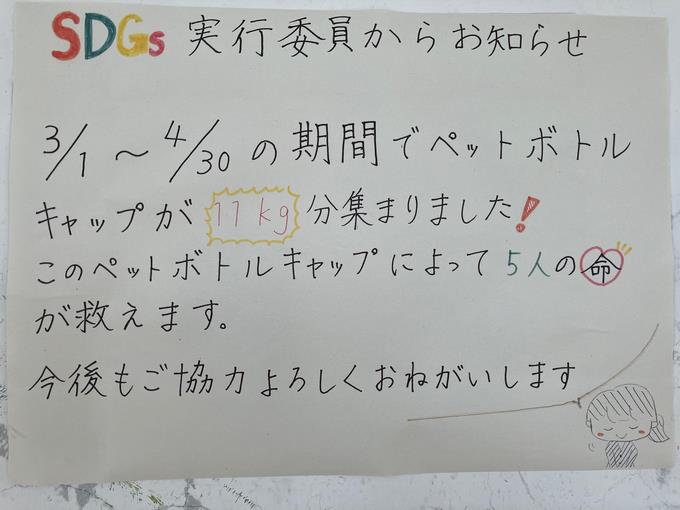 SDGs 実行委員からお知らせ
3/1 〜 4/30 の期間でペットボトル
キャップが 11kg 分集まりました!
このペットボトルキャップによって 5人の命
が救えます。
今後もご協力よろしくおねがいします